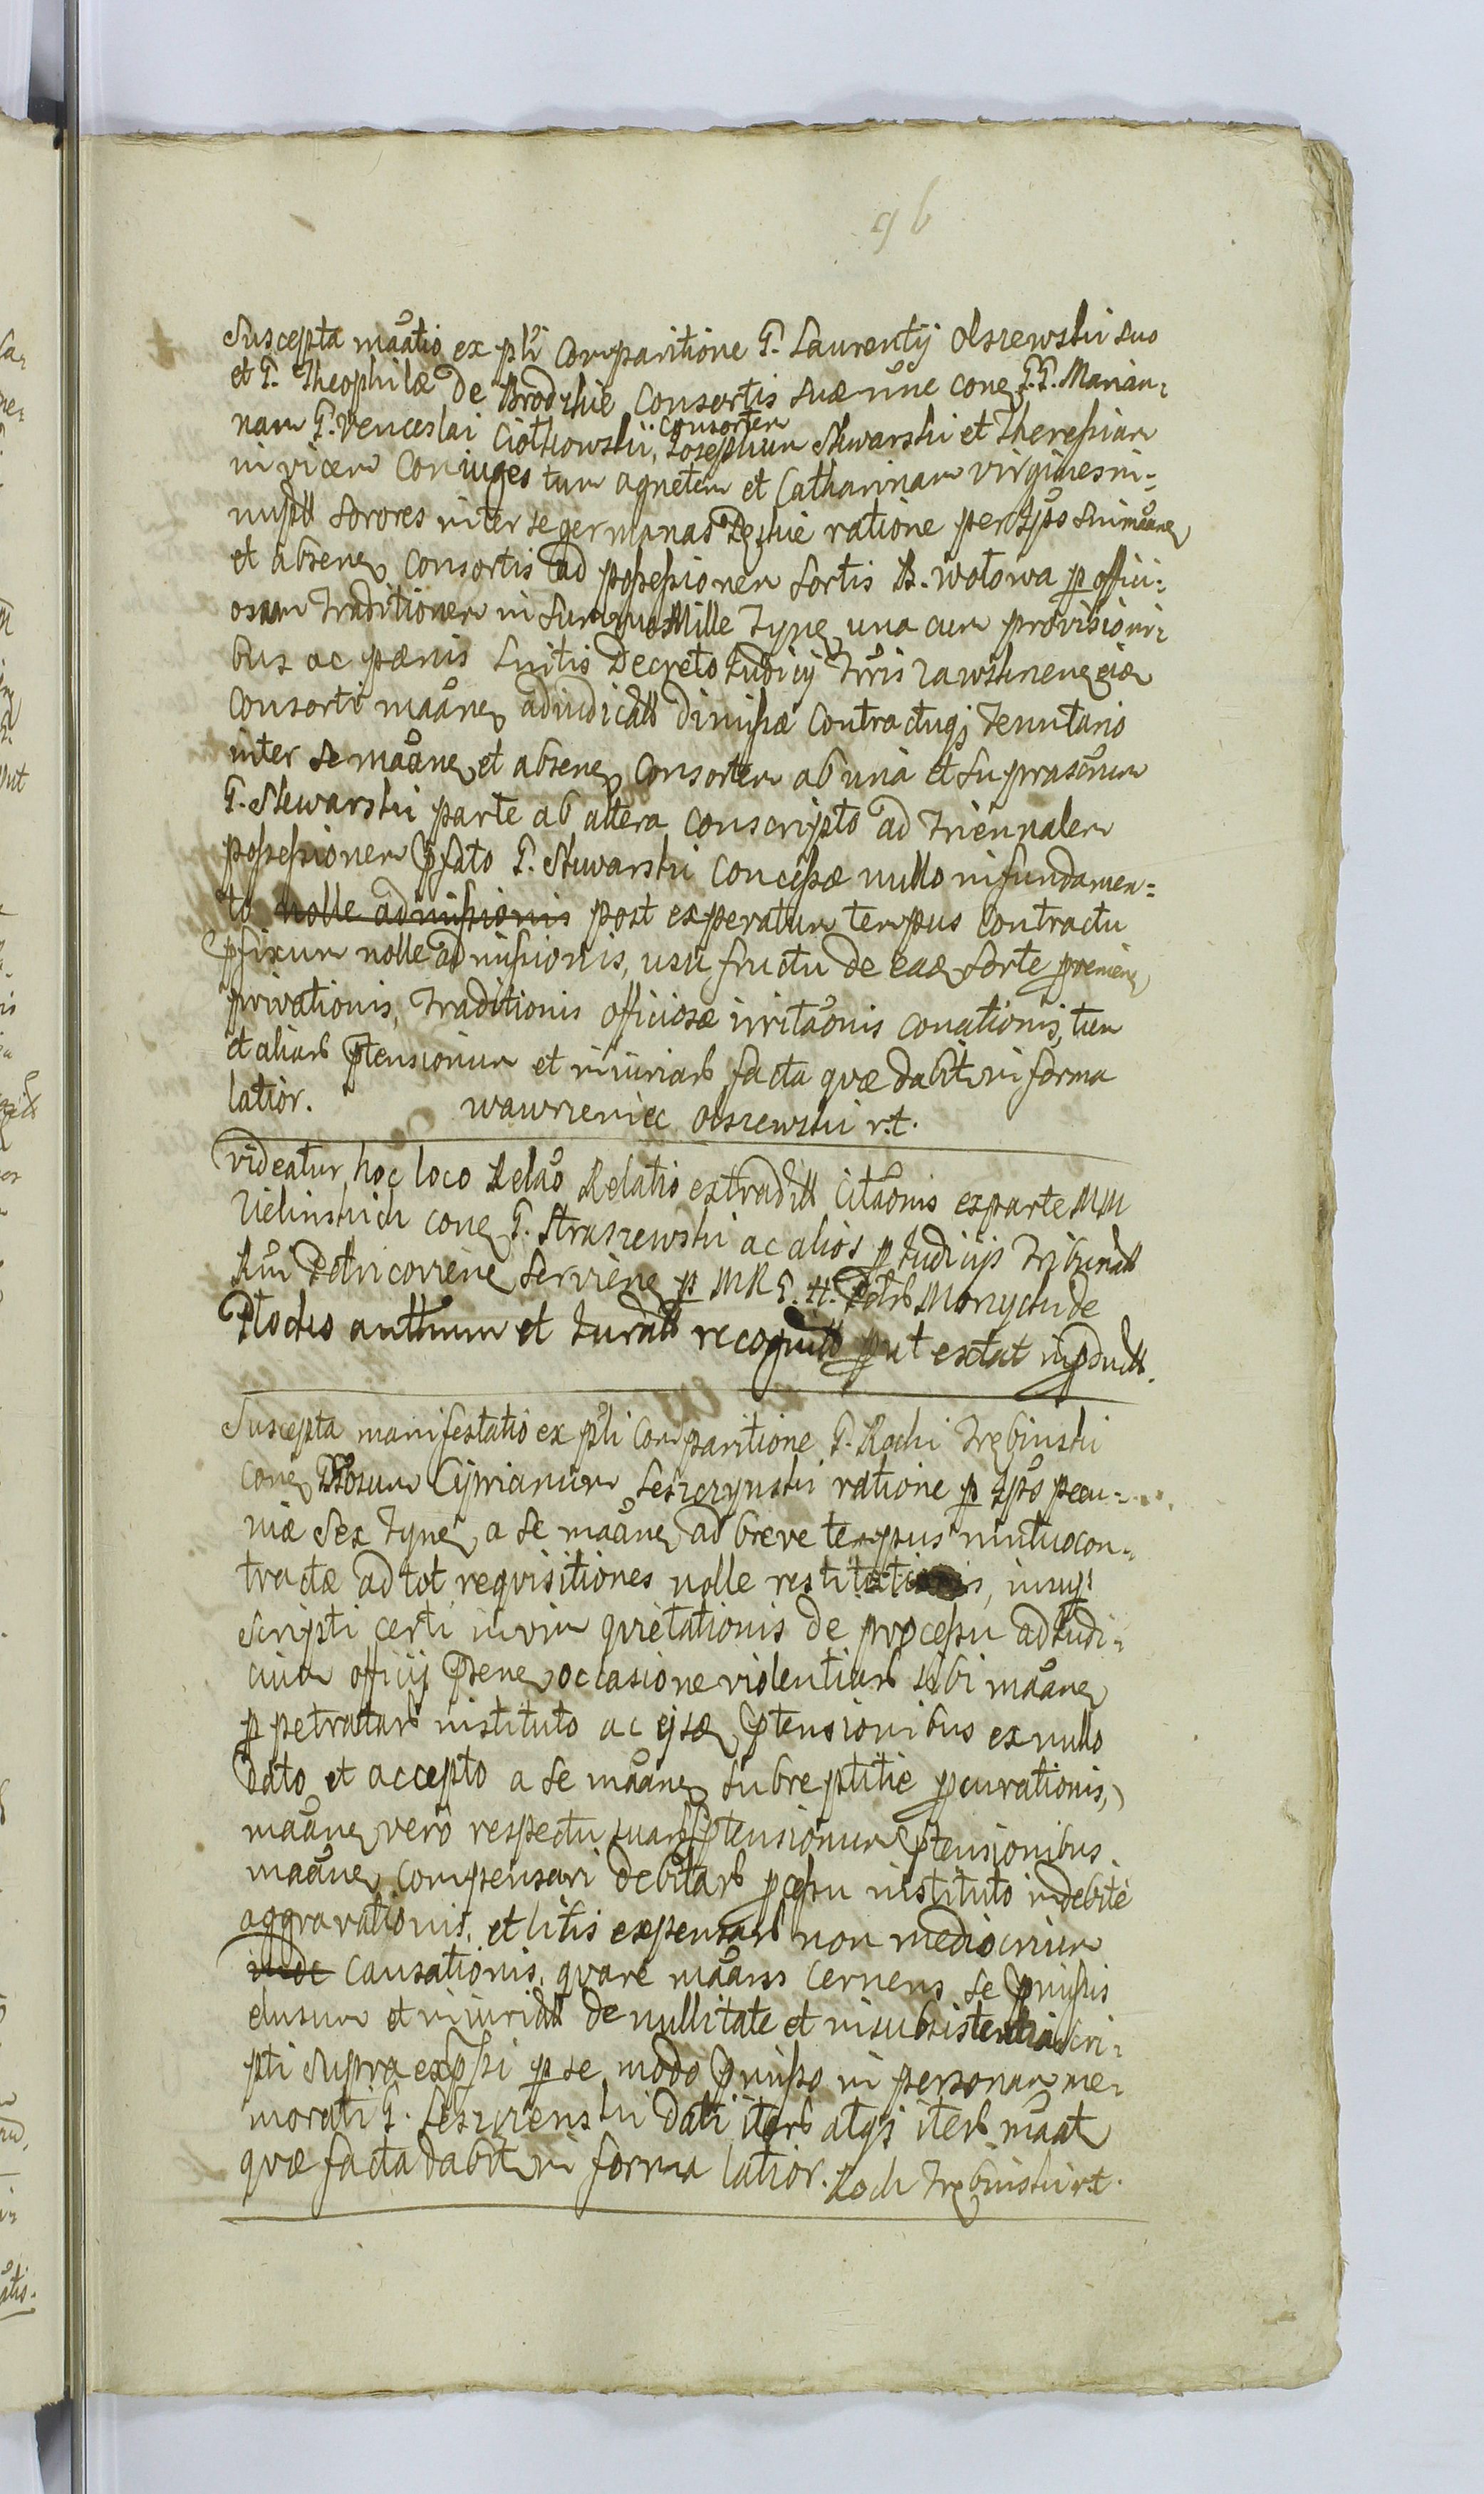 96
Suscepta maãtio ex pli Comparitione G. Laurentij Olszewski suo
et G. Theophilæ de Brodzkie Consortis suæ nõne cone G.G. Marian=
nam G. Venceslai Ciołkowskii, Consortem Iosephum Skwarski et Theresiam
invicem Coniuges tum agnetem et Catharinam virgines in=
nupt sorores inter se germanas ratione per Ipsos sui mãane
et absene Consortis ad possessionem sortis B. Wołowa p offici=
osam Traditionem in summa Mille Tyne una cum provisioni=
bus ac pænis luitis Decreto Iudicij Trris Rawskinene
Consorti maãne adiudicat dimissæ Contractuqz Tenutario
inter se maãne et absene Consortem ab una et supra
G. Skwarski parte ab altera conscripto ad Triennalem
possessionem Pfato G. Skwarski Concessæ nullo in fundamen=
to nolle admissionis post experatum tempus Contractu
pfixum nolle admissionis, usu fructu de eade sorte provenien
privationis, Traditionis officiosæ irritaõnis conationis, tum
et aliarb Ptensionum et iniuriarb facta quæ dabit in forma
latior. Wawrzeniec Olszewski r.t.
videatur hoc loco Relaõ Relatio extradit Citaõnis exparte MM
Zielinskich cone G. Straszewski ac alios p Iudicijs Tribunal
Petricoviene Serviene p MR G. H. Morzycki de
et Iurat recognit put extat inpduct.
Suscepta manifestatio ex pli Comparitione G. Rochi Trębinski
cone Gsosum Ciprianum Leszczynski ratione p Ipso pecu=
niæ Sex Tyne a se maãne ad breve tempus mutuo con=
tractæ ad tot requisitiones nolle restitutionis,
scripti certi in vim quietationis de processu ad Iudi=
cium officij Psene occasione violentiarb sibi maãne
p petratarb instituto ac Ptensionibus ex nullo
Dato et accepto a se maãne subreptitie pcurationis,
maãne vero respectu suarb Ptensionum Ptensionibus
maãne compensari debitarb pcessu instituto indebite
aggravationis, et litis expensarb non mediocrium
inde causationis, quare maãns cernens se Pmissis
elusum et iniuriat de nullitate et insubsistentia scri=
pti supra expssi p se modo Pmisso in personam me=
morati G. Leszczenski dati iterb atqz iterb maãt
quæ facta dabit in forma latior. Roch Trębinski rt.